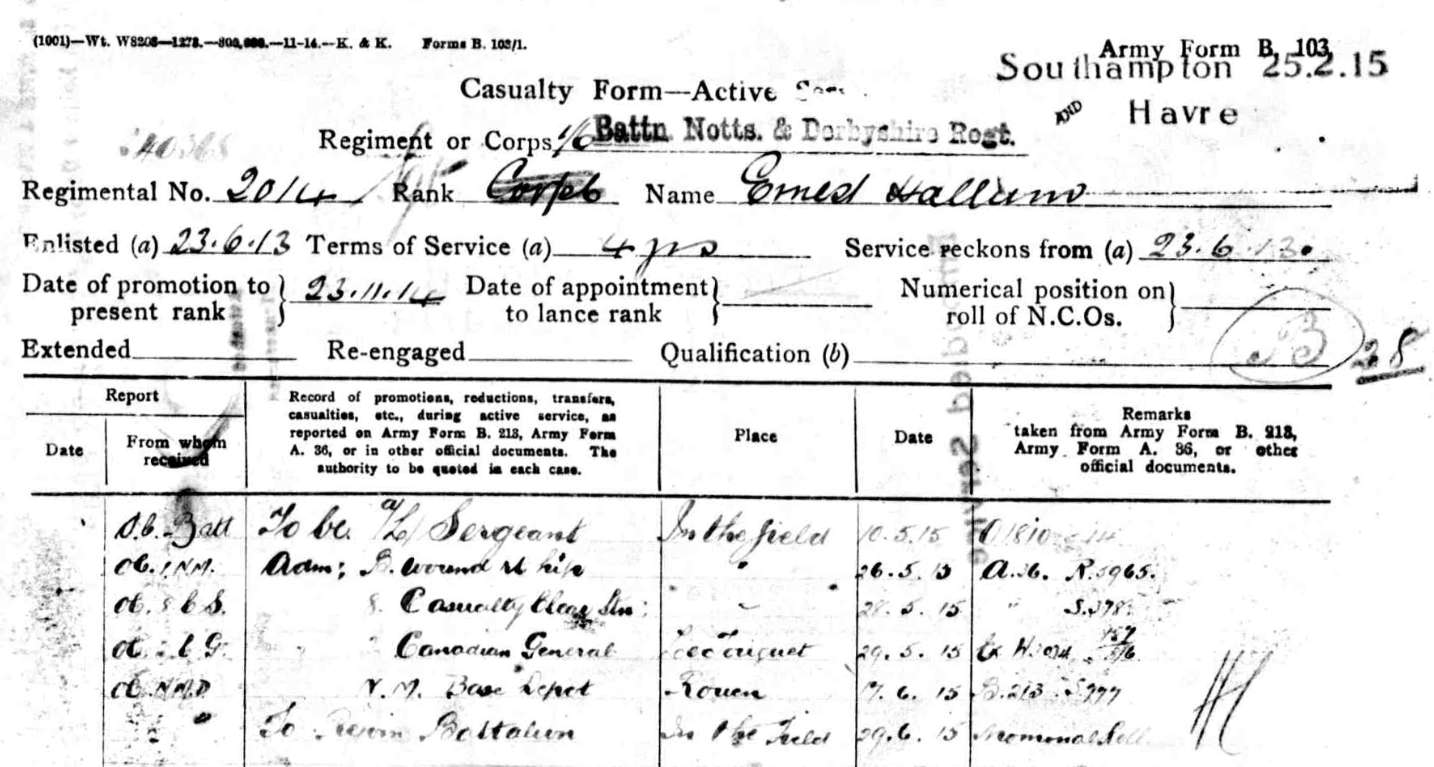 (1001)—Wt. W8208—1278.—800,000.—11-14.—K. & K. Forms B. 103/1.
Army Form B. 103
Southampton 25.2.15
AND Havre
Casualty Form—Active
Regiment or Corps 1/6 Battn Notts. & Derbyshire Regt.
Regimental No. 2014 Rank Corpl Name Ernest Hallam
Enlisted (a) 23.6.13 Terms of Service (a) 4 yrs Service reckons from (a) 23.6.13.
Date of promotion to present rank } 23.11.14 Date of appointment to lance rank } Numerical position on roll of N.C.Os. }
Extended Re-engaged Qualification (b)
3 28
Report
Date From whom received
Record of promotions, reductions, transfers,
casualties, etc., during active service, as
reported on Army Form B. 213, Army Form
A. 36, or in other official documents. The
authority to be quoted in each case.
Place
Date
Remarks
taken from Army Form B. 213,
Army Form A. 36, or other
official documents.
O.C. Batt To be a/L/Sergeant In the field 10.5.15
OC. Adm: B. wound Rt hip " 26.5.15 A.36.
OC. 8 C.S. 8. Casualty Clear Stn: 28.5.15
OC. Canadian General Le Touquet 29.5.15
OC. N.M. Base Depot Rouen 17.6.15 B.213
To Rejoin Battalion In the Field 29.6.15 Nominal Roll